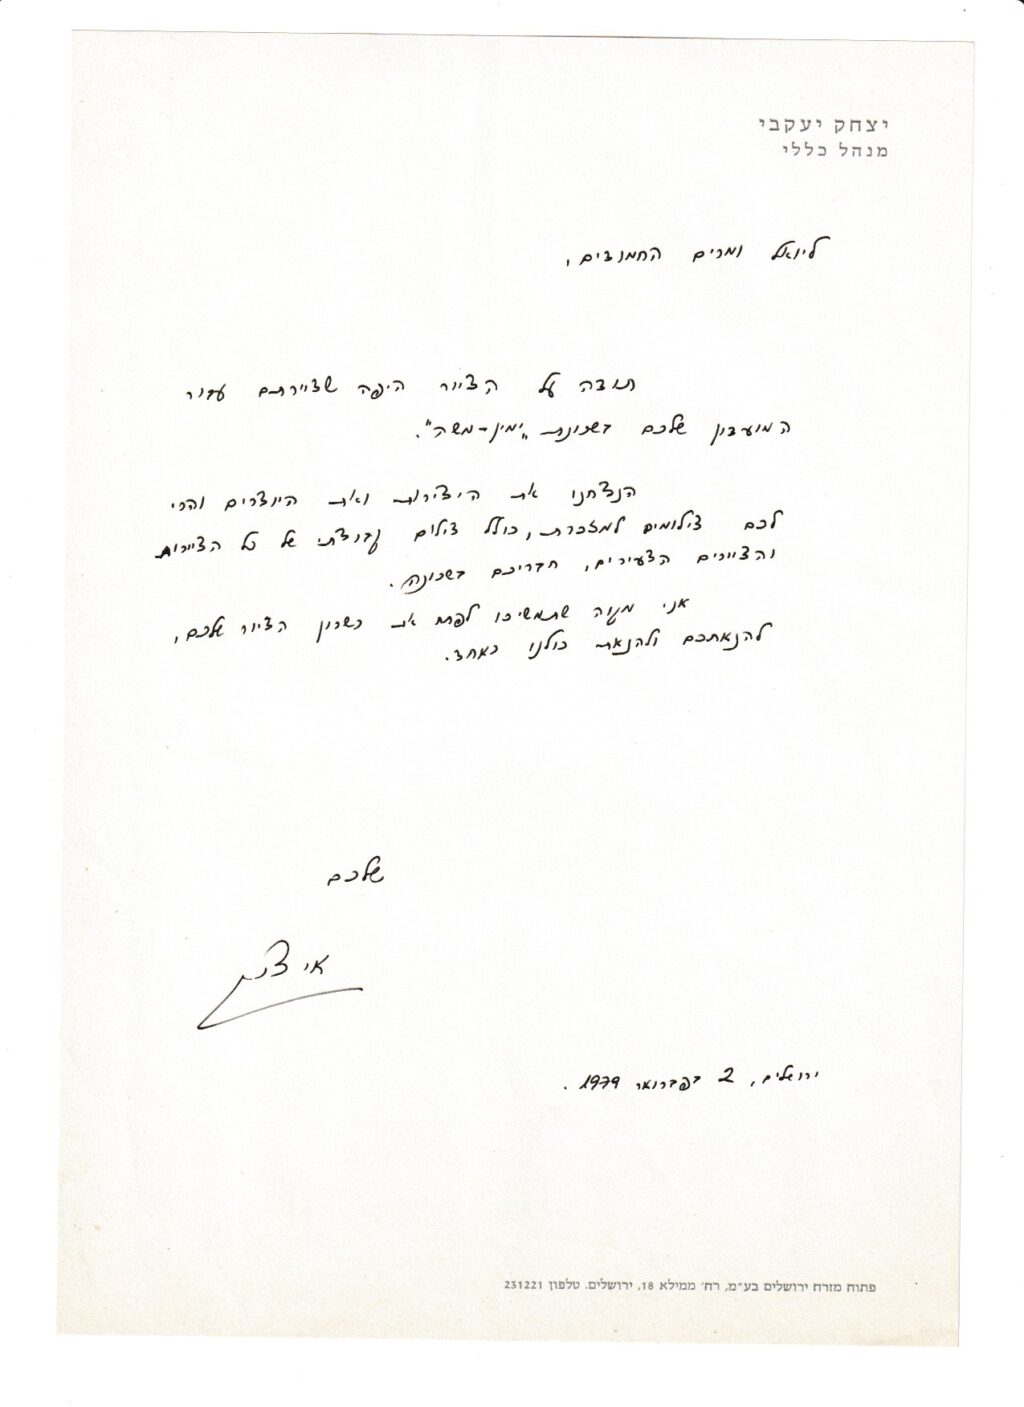 יצחק יעקבי
מנהל כללי
ליואל ומרים החמודים,
תודה על הציור היפה שציירתם עבור
המועדון שלכם בשכונת "ימין-משה".
הנצחנו את היצירות ואת היוצרים והרי
לכם צילומים למזכרת, כולל צילום קבוצתי של כל הציירות
והציירים הצעירים, חבריכם בשכונה.
אני מקוה שתמשיכו לפתח את כשרון הציור שלכם,
להנאתכם ולהנאת כולנו כאחד.
שלכם
איציק
ירושלים, 2 בפברואר 1979.
פתוח מזרח ירושלים בע"מ, רח' ממילא 18, ירושלים. טלפון 231221